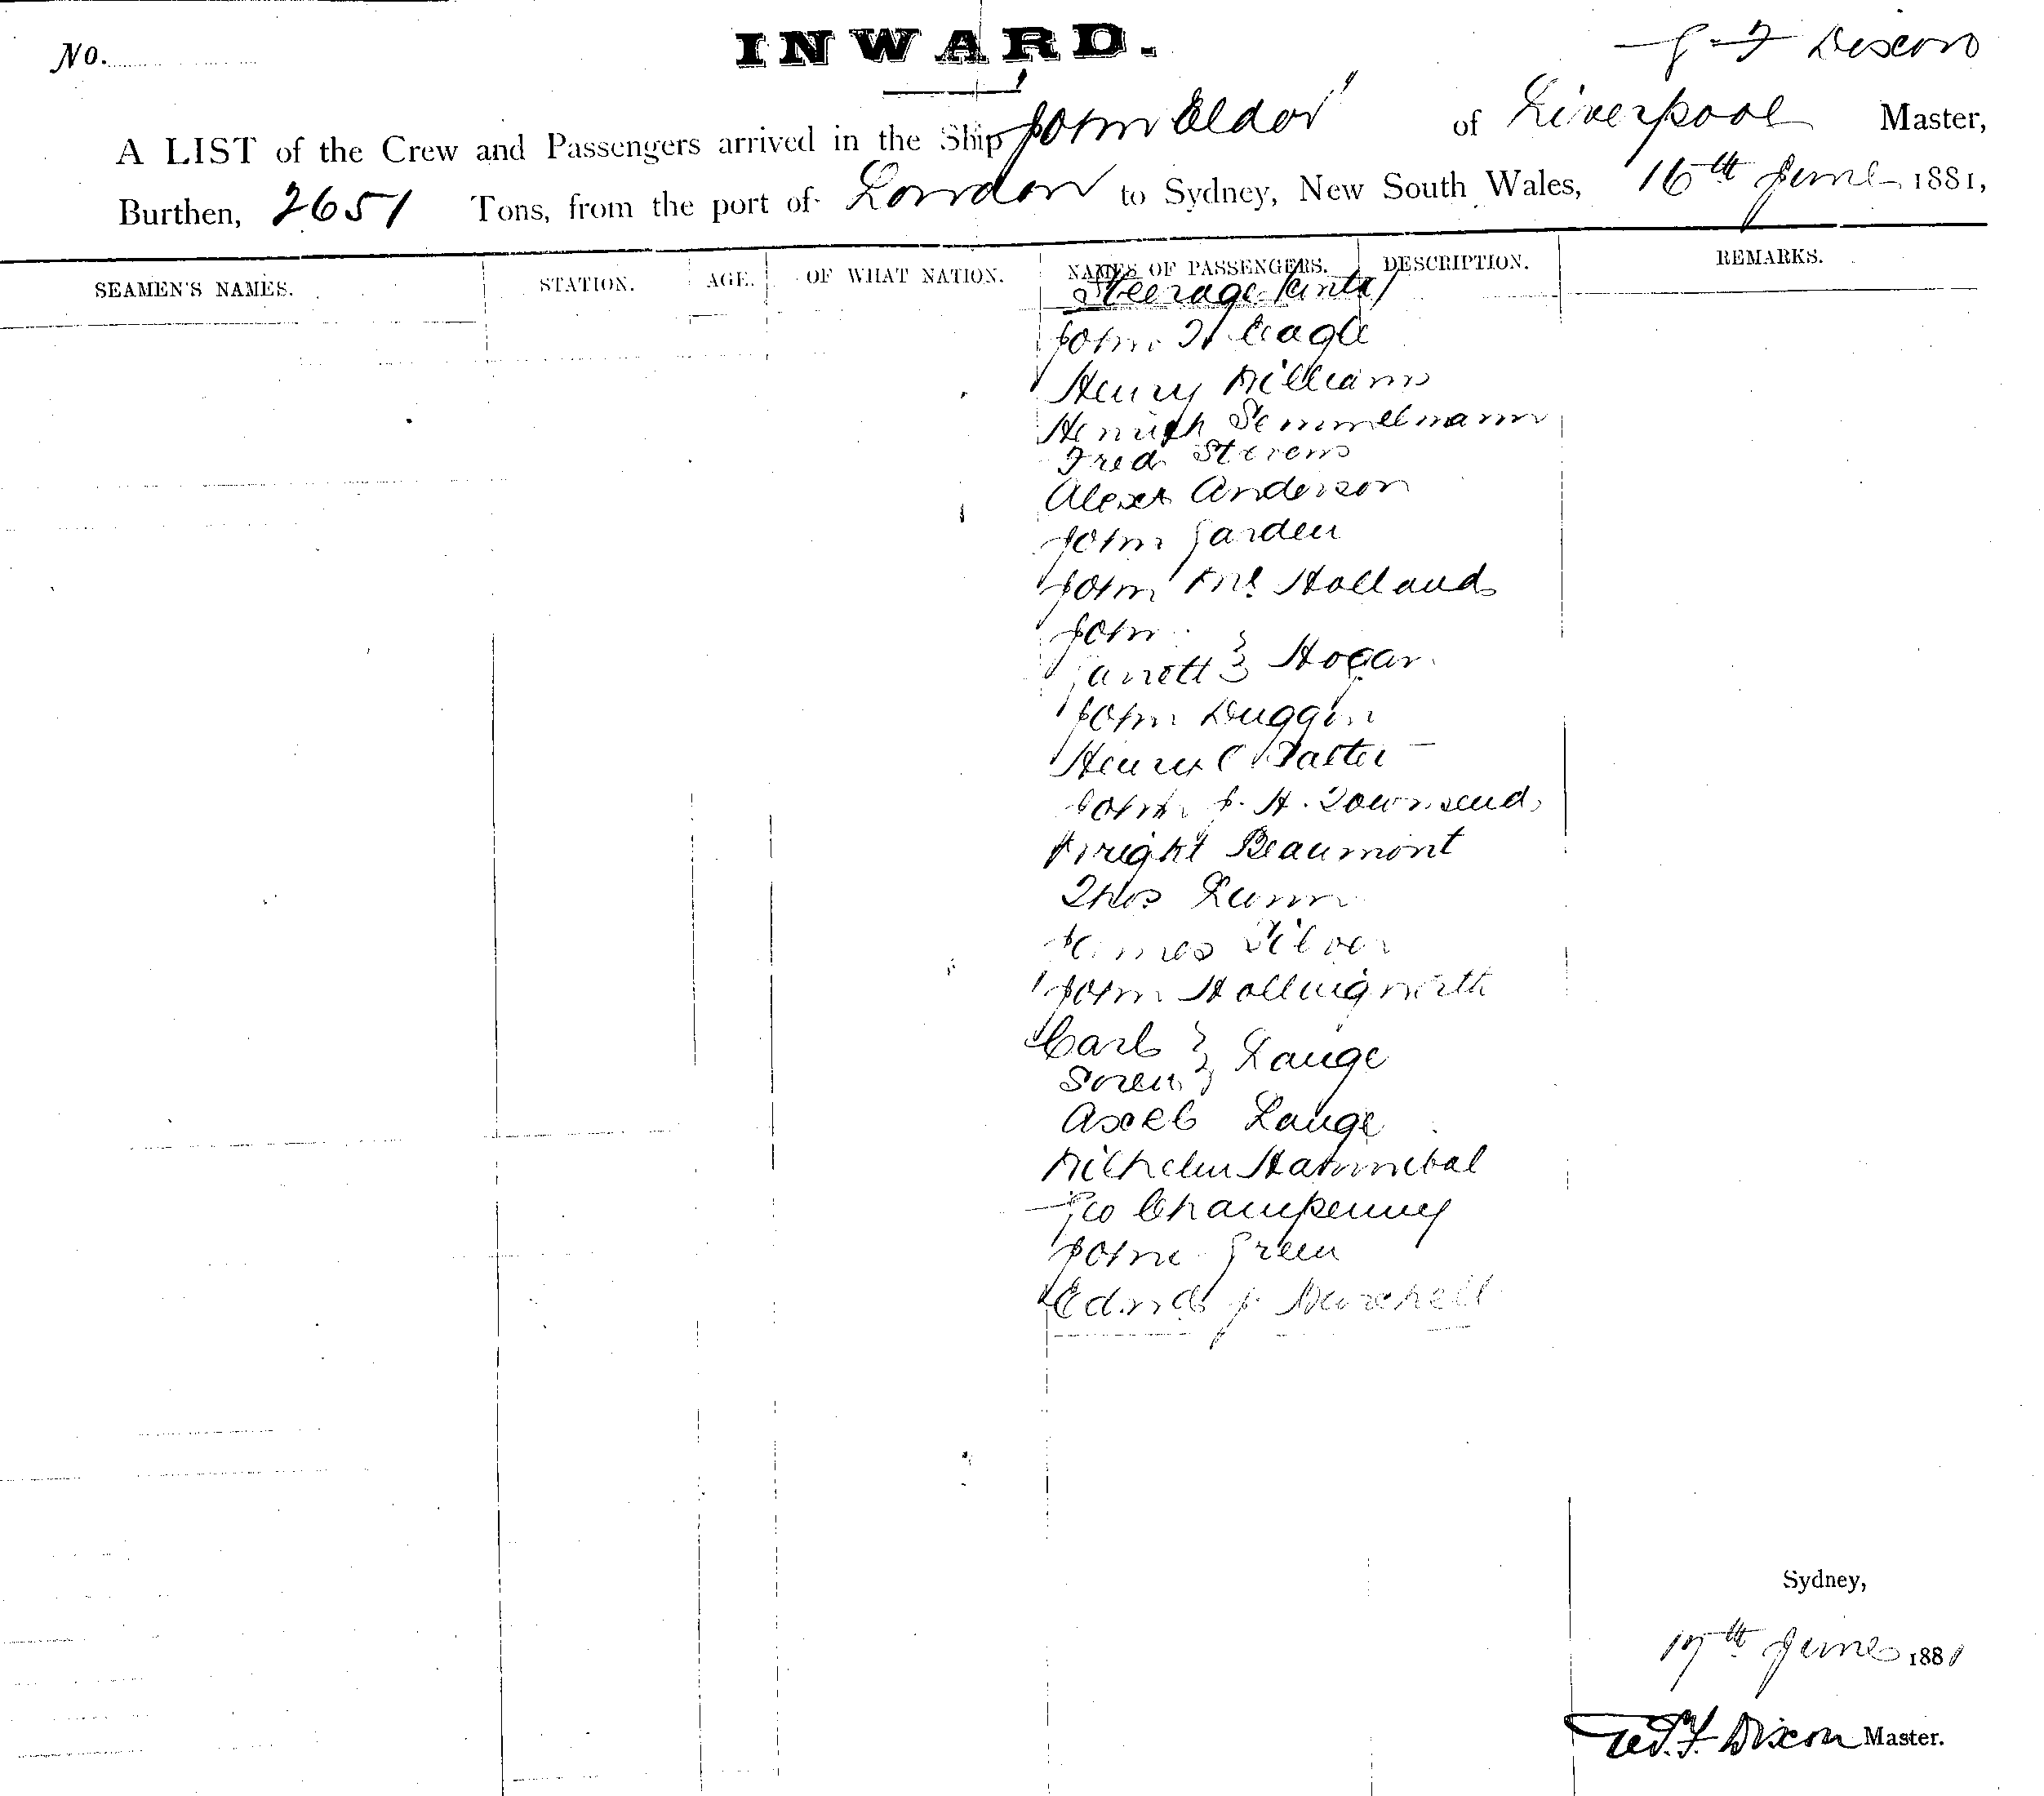 No.
INWARD.
G F Dixon
A LIST of the Crew and Passengers arrived in the Ship "John Elder" of Liverpool Master,
Burthen, 2651 Tons, from the port of London to Sydney, New South Wales, 16th June 1881,
SEAMEN'S NAMES. STATION. AGE. OF WHAT NATION. NAMES OF PASSENGERS. DESCRIPTION. REMARKS.
Steerage
John Eagle
Henry Williams
Semmelmann
Fred Stevens
Alexr Anderson
John Garden
John Holland
John
Garrett } Hogan
John Duggin
Henry C
John J. H. Townsend
Wright Beaumont
Thos Lunn
James Silver
John Hollingworth
Carl
Soren } Lange
Axel Lange
Wilhelm Hannibal
Geo Champenny
John Green
Edwd J Burchell
Sydney,
17th June 1881
Geo. F. Dixon Master.